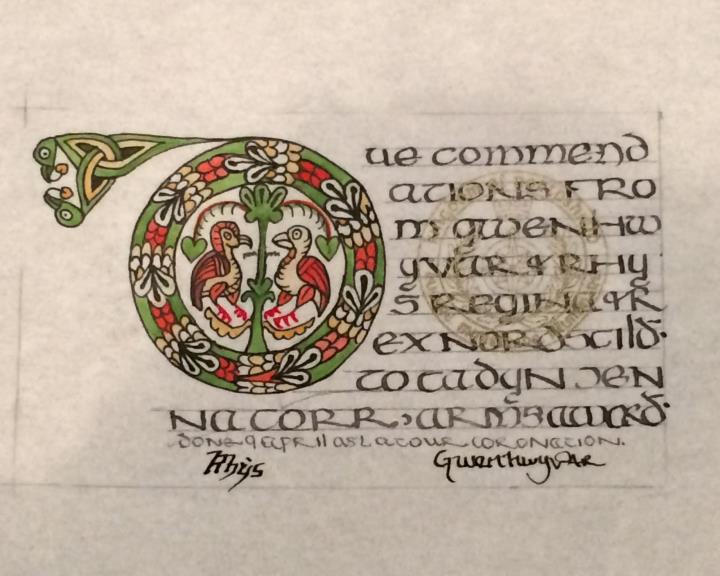 Due commend
ations fro
m gwenhw
yvar & Rhy
s Regina & R
ex Nordskild.
to Lady Jen
na Corr, arms award.
done 9 April as L at our coronation.
Rhys Gwenhwyvar